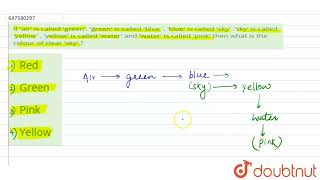 647580297
If 'air' is called 'green', 'green' is called 'blue', 'blue' is called 'sky', 'sky' is called
'yellow', 'yellow' is called 'water' and 'water' is called 'pink', then what is the
colour of clear 'sky'?
Red
Green
Pink
4) Yellow
Air → green → blue →
(sky) → yellow
↓
water
↓
(pink)
doubtnut